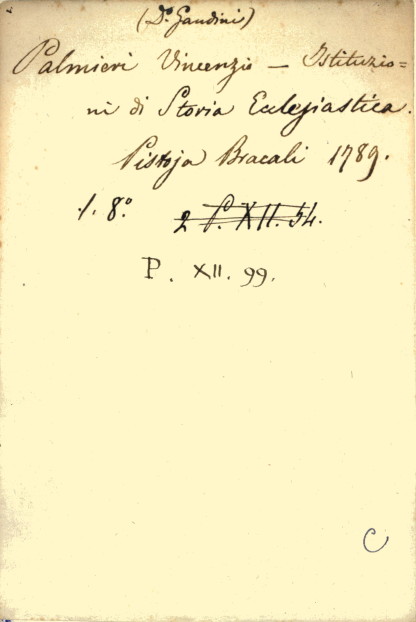 (D. Gandini)
Palmieri Vincenzio — Istituzio=
ni di Storia Eclegiastica.
Pistoja Bracali 1789.
1. 8º. 2 P. XII. 54.
P. XII. 99.
C